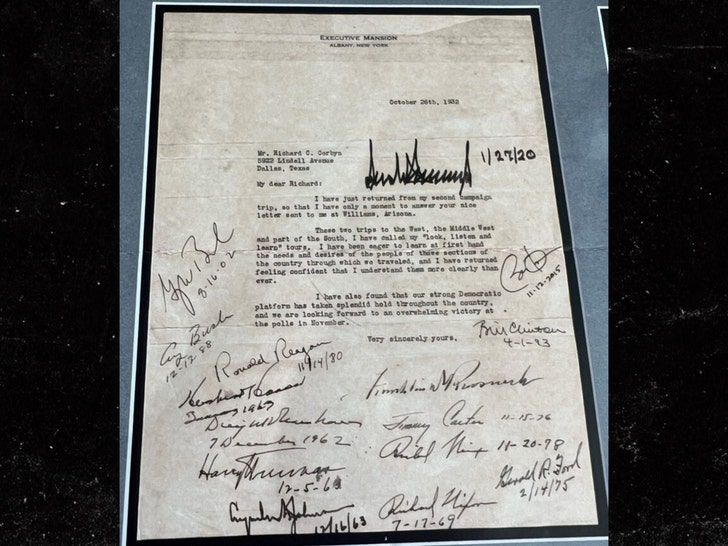 EXECUTIVE MANSION
ALBANY, NEW YORK
October 26th, 1932
Mr. Richard C. Corbyn
5922 Lindell Avenue
Dallas, Texas
1/27/20
My dear Richard:
I have just returned from my second campaign
trip, so that I have only a moment to answer your nice
letter sent to me at Williams, Arizona.
These two trips to the West, the Middle West
and part of the South, I have called my "look, listen and
learn" tours. I have been eager to learn at first hand
the needs and desires of the people of those sections of
the country through which we traveled, and I have returned
feeling confident that I understand them more clearly than
ever.
I have also found that our strong Democratic
platform has taken splendid hold throughout the country,
and we are looking forward to an overwhelming victory at
the polls in November.
Very sincerely yours,
8-16-02
11-12-2015
Bill Clinton
4-1-93
Bush
12-12-88
Ronald Reagan
11/14/80
Franklin D Roosevelt
Dwight D Eisenhower
7 December 1962
Jimmy Carter 11-15-76
11-20-78
Harry Truman
Gerald R. Ford
2/14/75
12/16/63
Richard Nixon
7-17-69